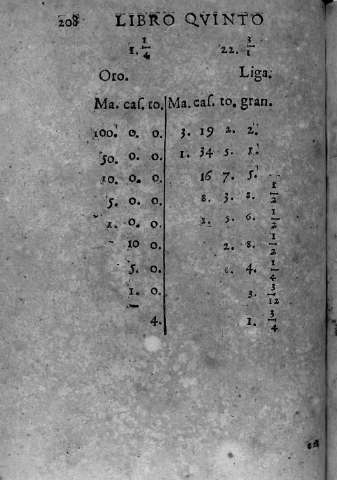 208 LIBRO QVINTO
1. 1/4 22. 3/1
Oro. Liga.
Ma. caſ. to. Ma. caſ. to. gran.
100. 0. 0. 3. 19 2. 2.
50. 0. 0. 1. 34 5. 1.
10. 0. 0. 16 7. 5. 1/2
5. 0. 0. 8. 3. 8. 1/2
1. 0. 0. 1. 5. 6. 1/2
10 0. 2. 8. 1/2
5. 0. 4. 1/4
1. 0. 3. 3/12
4. 1. 3/4